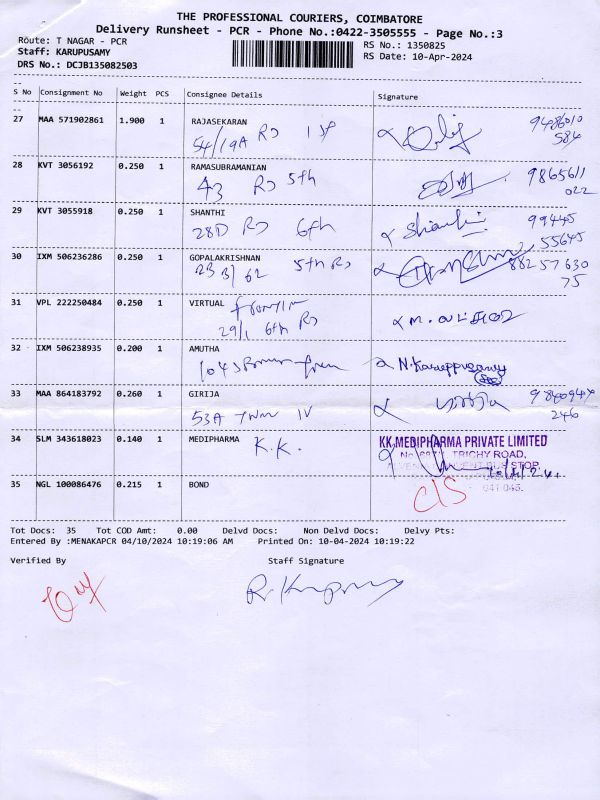 THE PROFESSIONAL COURIERS, COIMBATORE
Delivery Runsheet - PCR - Phone No.:0422-3505555 - Page No.:3
Route: T NAGAR - PCR
RS No.: 1350825
Staff: KARUPUSAMY
RS Date: 10-Apr-2024
DRS No.: DCJB135082503
S No Consignment No Weight PCS Consignee Details Signature
27 MAA 571902861 1.900 1 RAJASEKARAN
54/19A RD
9486010
584
28 KVT 3056192 0.250 1 RAMASUBRAMANIAN
43 RD 5th
9865611
022
29 KVT 3055918 0.250 1 SHANTHI
28D RD 6th
Shanthi
99445
55645
30 IXM 506236286 0.250 1 GOPALAKRISHNAN
23 B/62 5th RD
88257630
75
31 VPL 222250484 0.250 1 VIRTUAL
29/1 6th RD
32 IXM 506238935 0.200 1 AMUTHA
104
N.Karuppusamy
33 MAA 864183792 0.260 1 GIRIJA
53A IV
9840944
246
34 SLM 343618023 0.140 1 MEDIPHARMA
K.K.
KK.MEDIPHARMA PRIVATE LIMITED
TRICHY ROAD,
BUS STOP,
641 045.
35 NGL 100086476 0.215 1 BOND
C/S
Tot Docs: 35 Tot COD Amt: 0.00 Delvd Docs: Non Delvd Docs: Delvy Pts:
Entered By :MENAKAPCR 04/10/2024 10:19:06 AM Printed On: 10-04-2024 10:19:22
Verified By Staff Signature